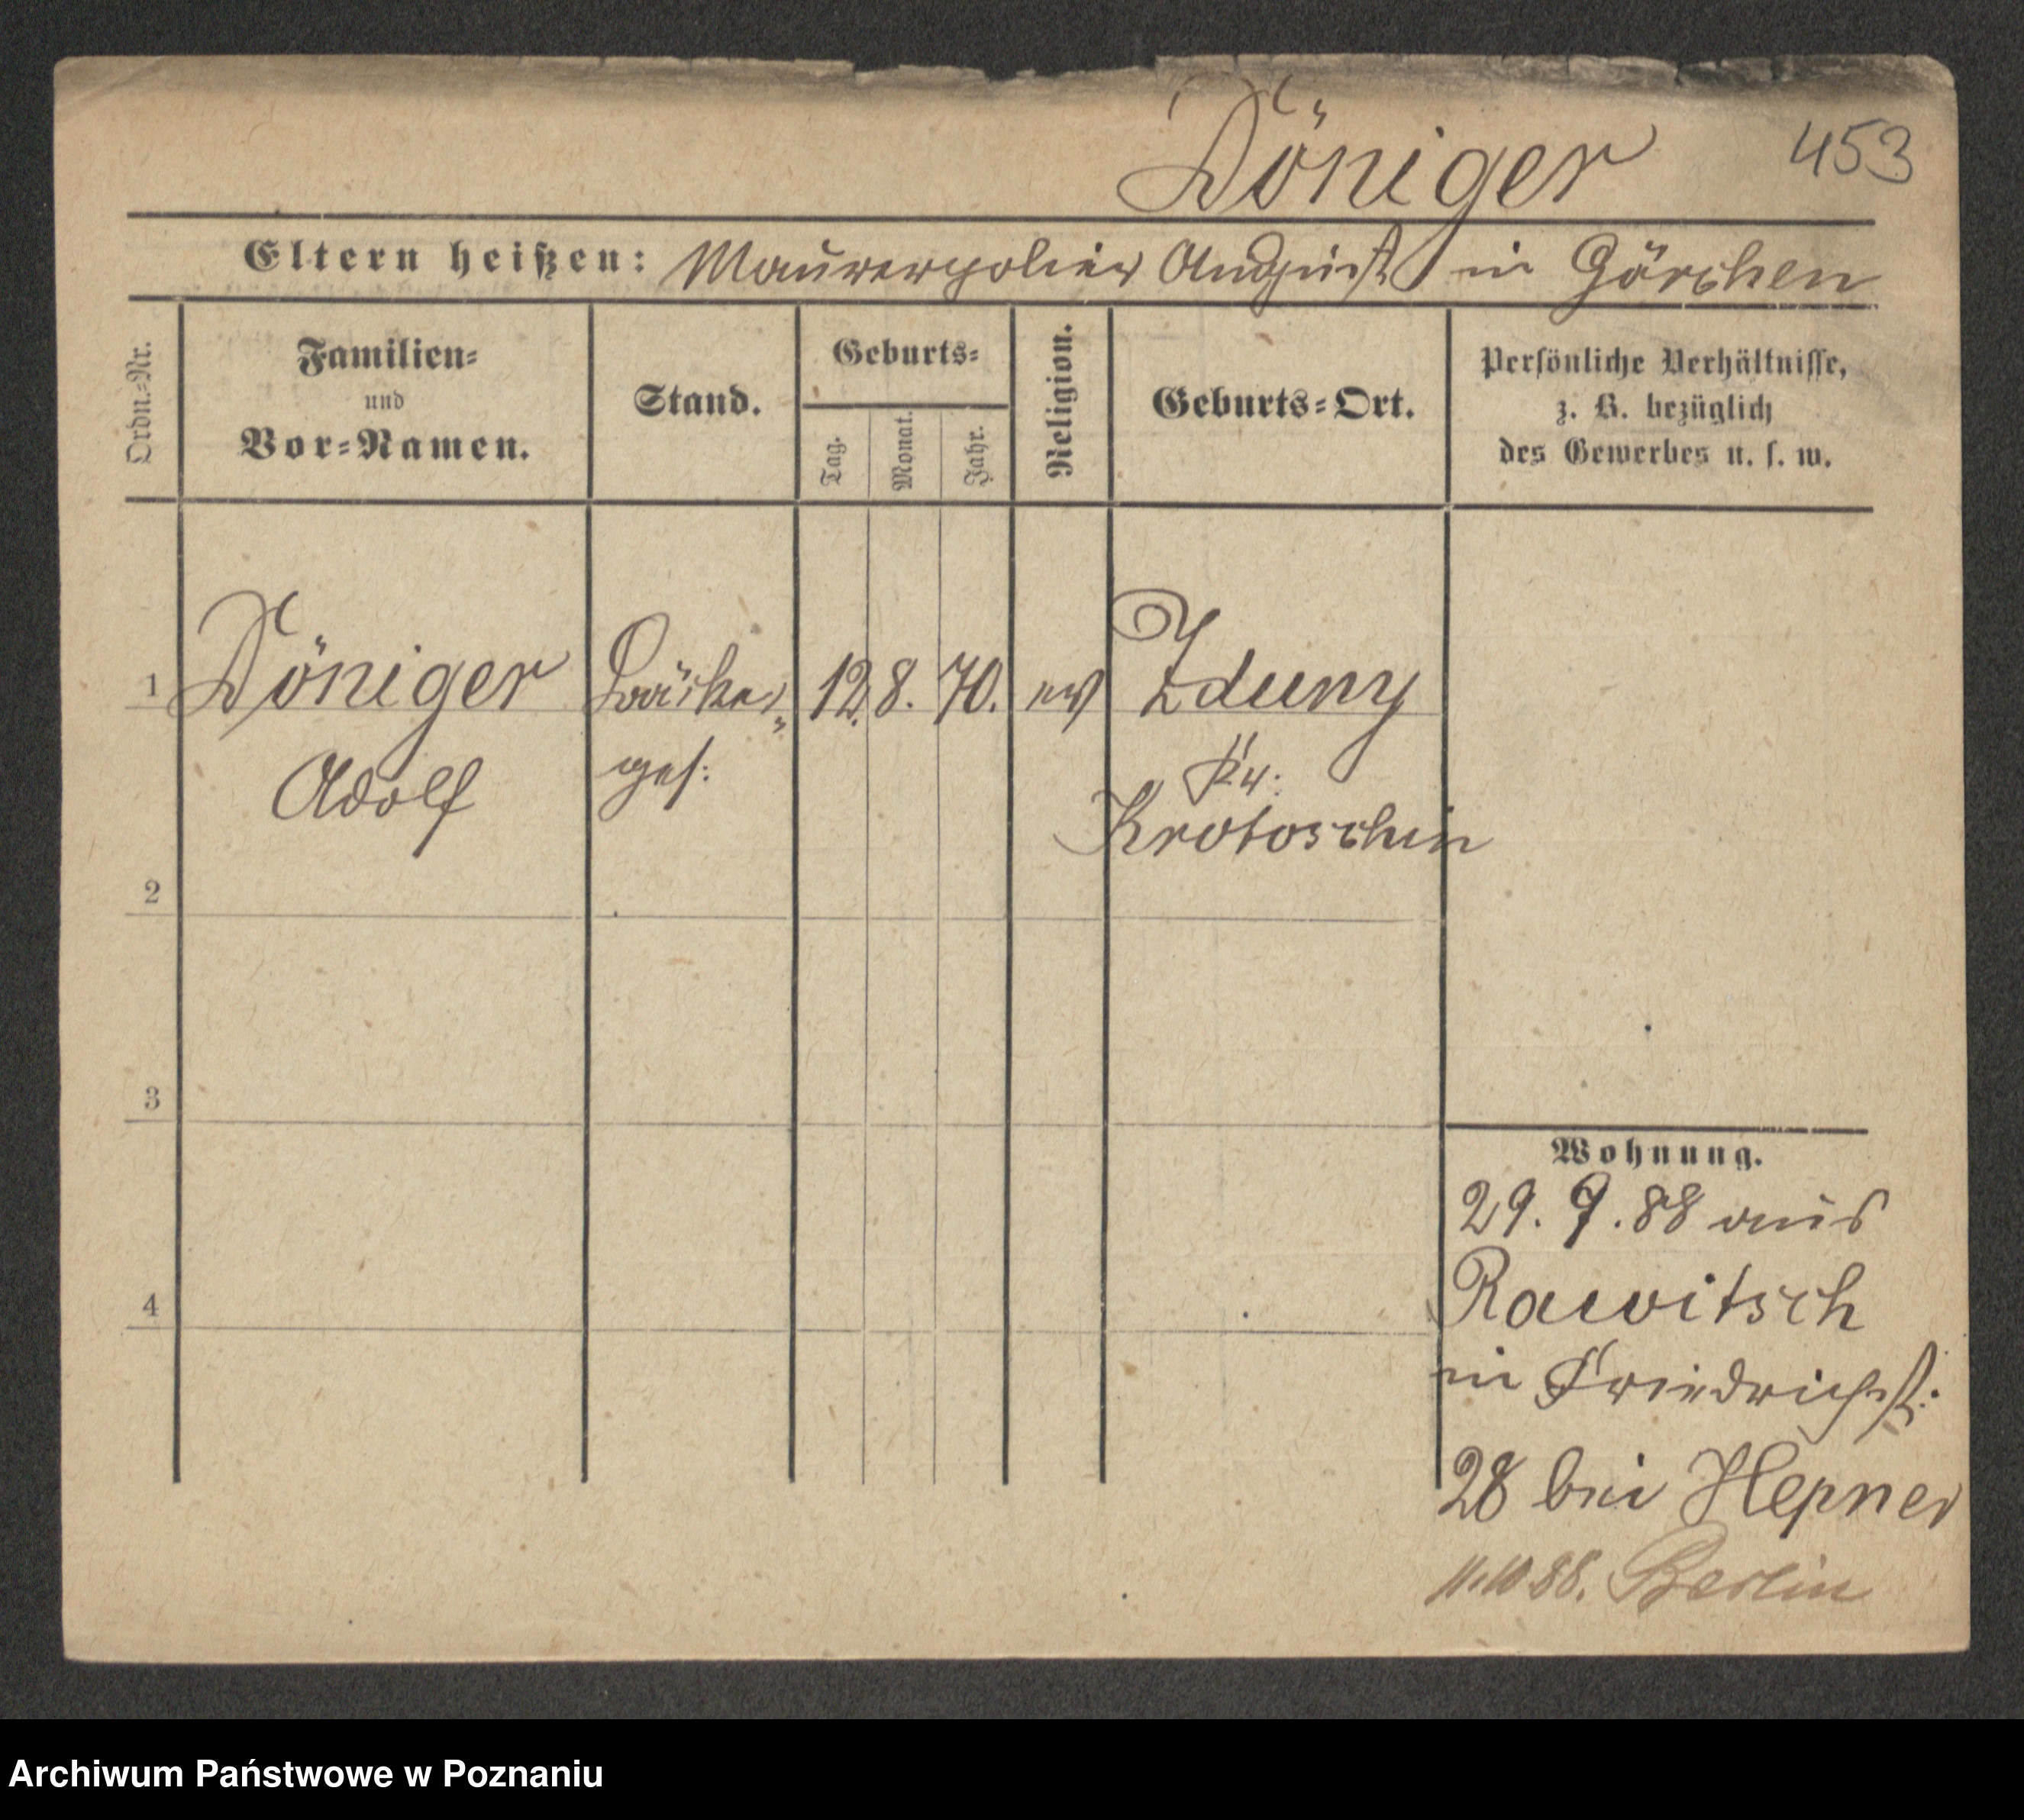 Döniger 453
Eltern heißen: Maurerpolier August in Görchen
Ordn.-Nr.
Familien-
und
Vor-Namen.
Stand.
Geburts-
Tag.
Monat.
Jahr.
Religion.
Geburts-Ort.
Persönliche Verhältnisse,
z. B. bezüglich
des Gewerbes u. s. w.
1 Döniger Bäcker 12. 8. 70. ev Zduny
Adolf ges: Kr:
Krotoschin
2
3
4
Wohnung.
29. 9. 88 aus
Rawitsch
in Friedrichst:
28 bei Hepner
11.10.88. Berlin
Archiwum Państwowe w Poznaniu